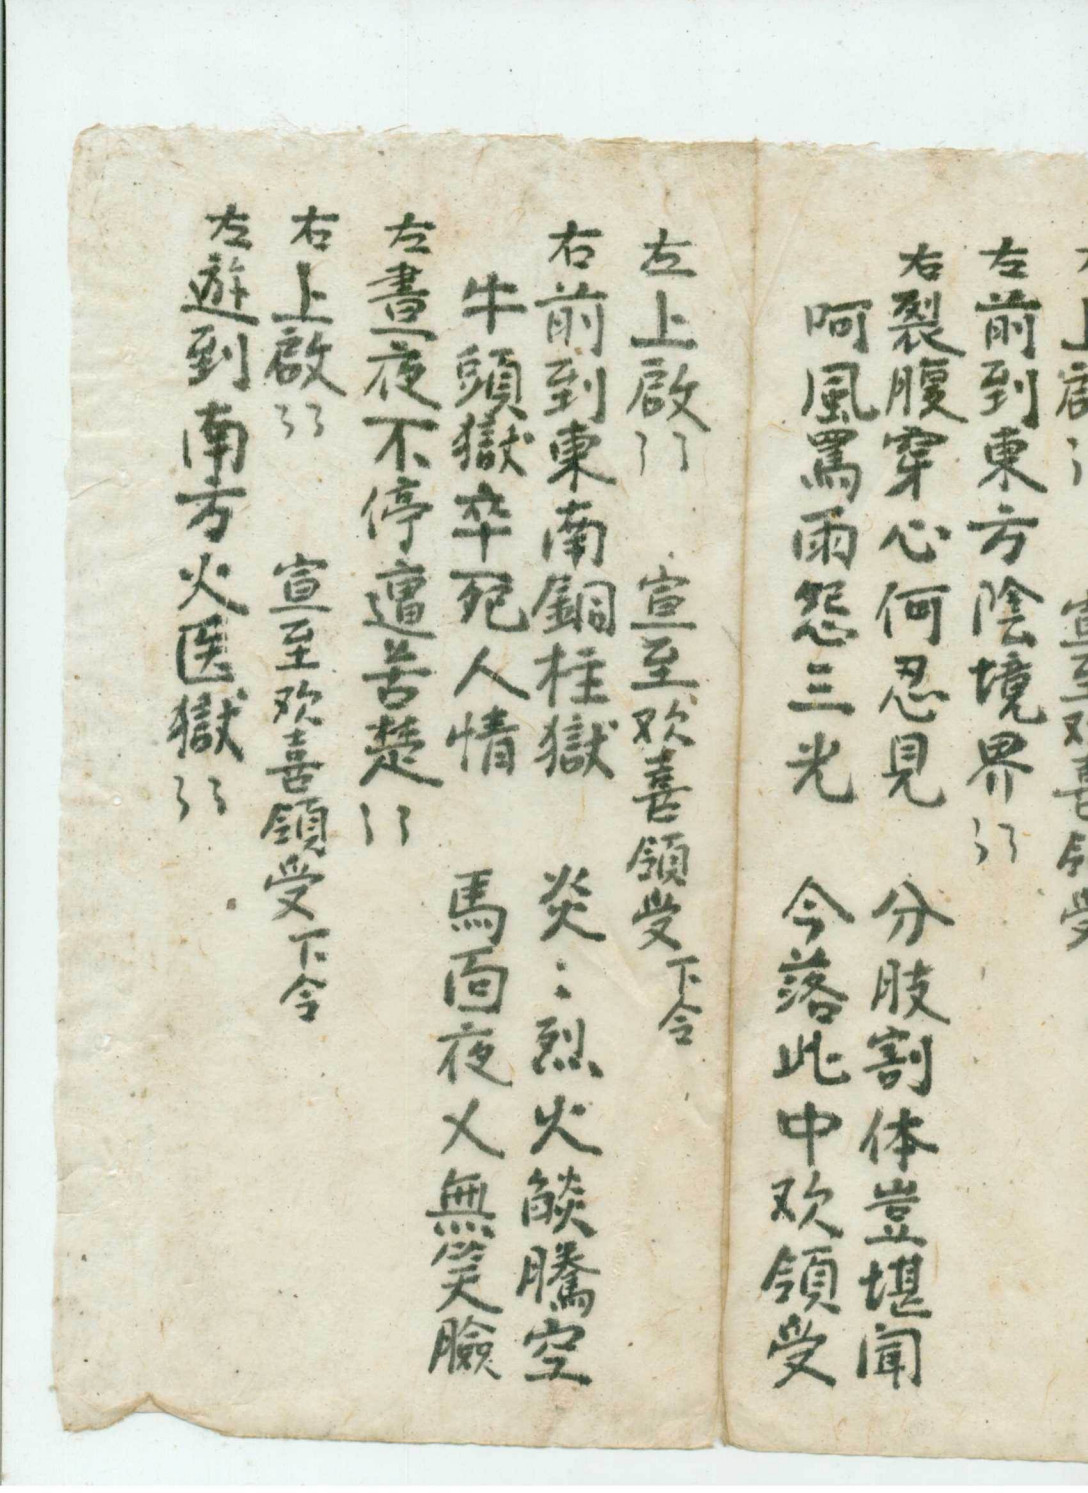 上啟 宣至欢喜領受
左前到東方陰境界了了
右裂腹穿心何忍見 分肢割体豈堪聞
呵風罵雨怨三光 今落此中欢領受
左上啟了了 宣至欢喜領受下令
右前到東南銅柱獄 炎〻烈火燄騰空
牛頭獄卒死人情 馬面夜乂無笑臉
左晝夜不停遭苦楚了了
右上啟了了 宣至欢喜領受下令
左遊到南方火医獄了了